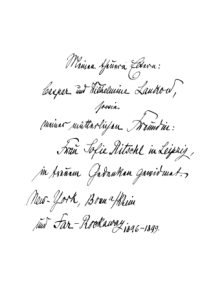 Meinen theuern Eltern:
Casper und Wilhelmine Lankow,
sowie
meiner mütterlichen Freundin:
Frau Sofie Rietschel in Leipzig,
in treuem Gedenken gewidmet.
New-York, Bonn a/Rhein
und Far-Rockaway 1896-1899.